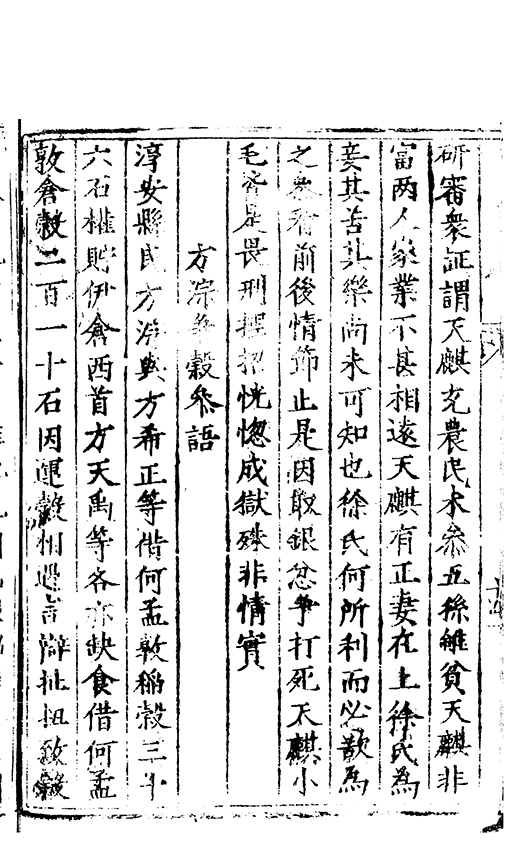 研審衆証謂天麒克農民木叅五孫雖貧天麒非
富两人家業不甚相遠天麒有正妻在上徐氏為
妾其苦其樂尚未可知也徐氏何所利而必歆為
之叅看前後情節止是因取銀忿爭打死天麒小
毛胥是畏刑捏招恍惚成獄殊非情實
方淙爭穀叅語
淳安縣民方淙與方希正等借何孟敦稲穀三十
六石權貯伊倉西首方天禹等各亦缺食借何孟
敦倉穀二百一十石因運穀相遇言辯扯扭致穀